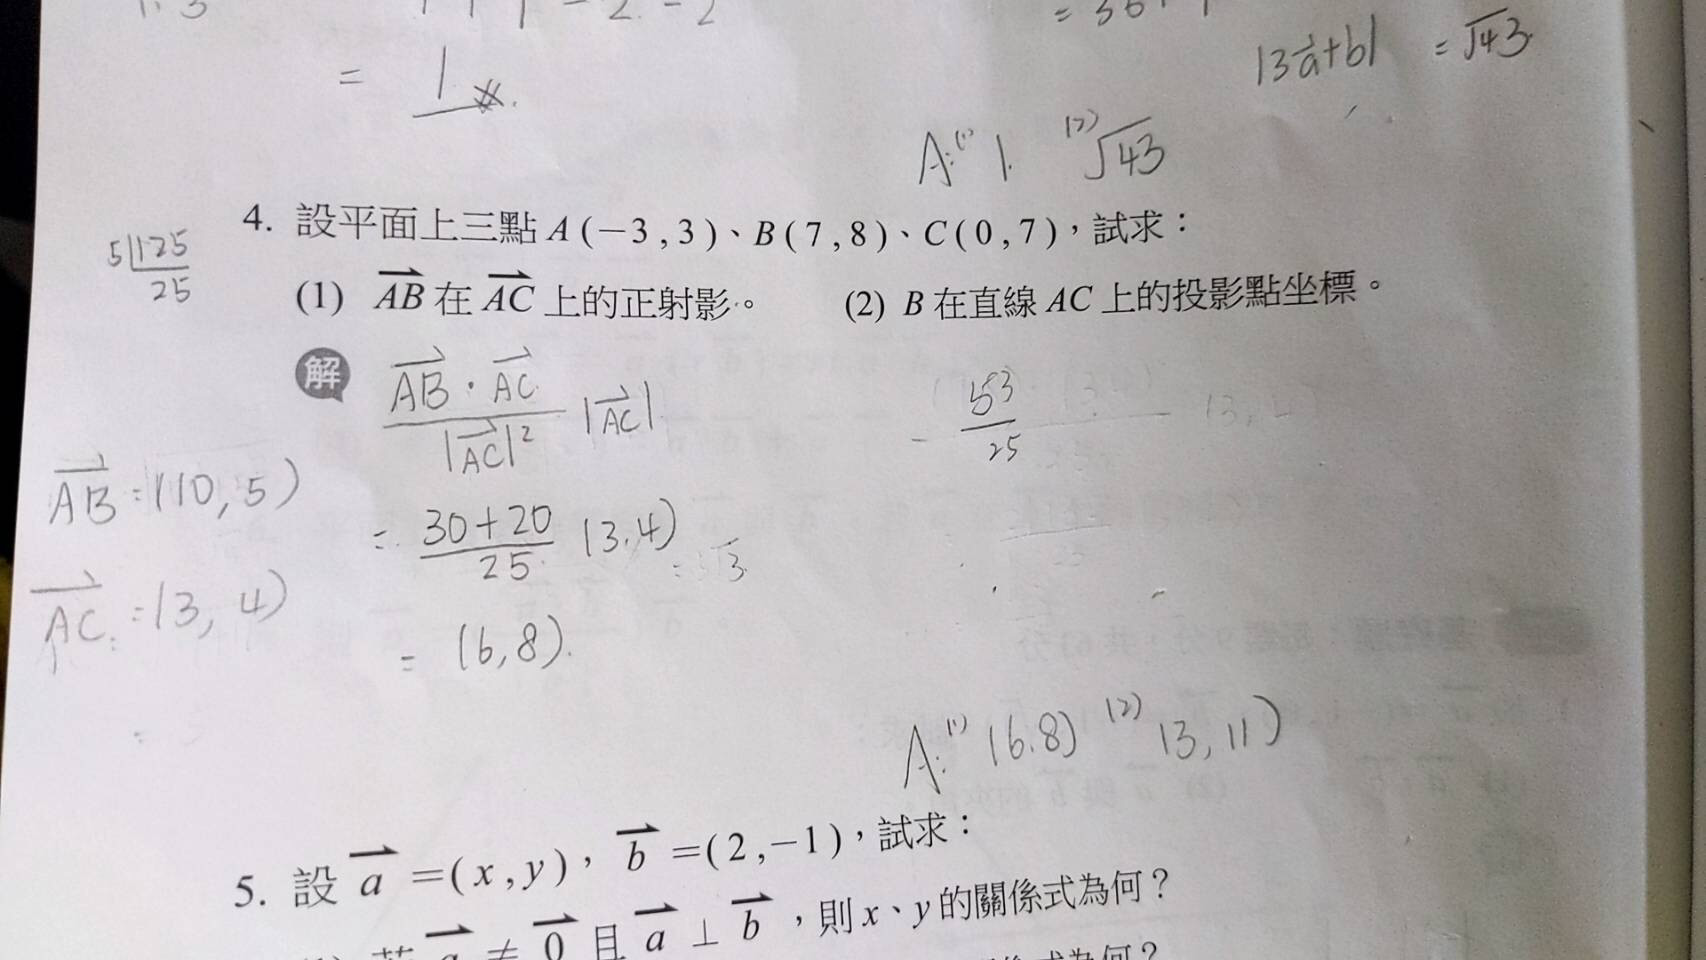 = 1
|3a+b| = √43
A:(1) 1. (2) √43
4. 設平面上三點 A(−3,3)、B(7,8)、C(0,7),試求:
5 125
25
(1) AB 在 AC 上的正射影。 (2) B 在直線 AC 上的投影點坐標。
解
AB · AC / |AC|² |AC|
53 / 25
AB = (10,5)
= 30+20 / 25 (3,4)
AC = (3,4)
= (6,8).
A:(1) (6,8) (2) (3,11)
5. 設 a =(x,y),b =(2,−1),試求:
≠ 0 且 a ⊥ b ,則 x、y 的關係式為何?
式為何?